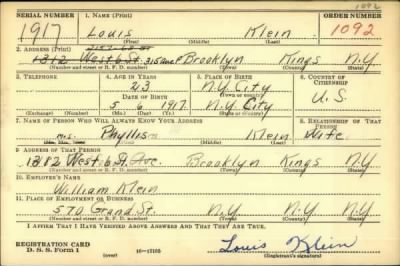 1092
SERIAL NUMBER 1. NAME (Print) ORDER NUMBER
1917 Louis Klein 1092
(First) (Middle) (Last)
2. ADDRESS (Print)
1312 West 6 St. 315 Ave P Brooklyn Kings N.Y.
(Number and street or R. F. D. number) (Town) (County) (State)
3. TELEPHONE 4. AGE IN YEARS 5. PLACE OF BIRTH 6. COUNTRY OF CITIZENSHIP
23 N.Y. City
DATE OF BIRTH (Town or county) U.S.
5 6 1917 N.Y. City
(Exchange) (Number) (Mo.) (Day) (Yr.) (State or country)
7. NAME OF PERSON WHO WILL ALWAYS KNOW YOUR ADDRESS 8. RELATIONSHIP OF THAT PERSON
Mrs. Phyllis Klein Wife
(Mr., Mrs., Miss) (First) (Middle) (Last)
9. ADDRESS OF THAT PERSON
1312 West 6 St. Ave. Brooklyn Kings N.Y.
(Number and street or R. F. D. number) (Town) (County) (State)
10. EMPLOYER'S NAME
William Klein
11. PLACE OF EMPLOYMENT OR BUSINESS
570 Grand St. N.Y. N.Y.
(Number and street or R. F. D. number) (Town) (County) (State)
I AFFIRM THAT I HAVE VERIFIED ABOVE ANSWERS AND THAT THEY ARE TRUE.
REGISTRATION CARD
D. S. S. Form 1 (over) 16-17105 Louis Klein
(Registrant's signature)